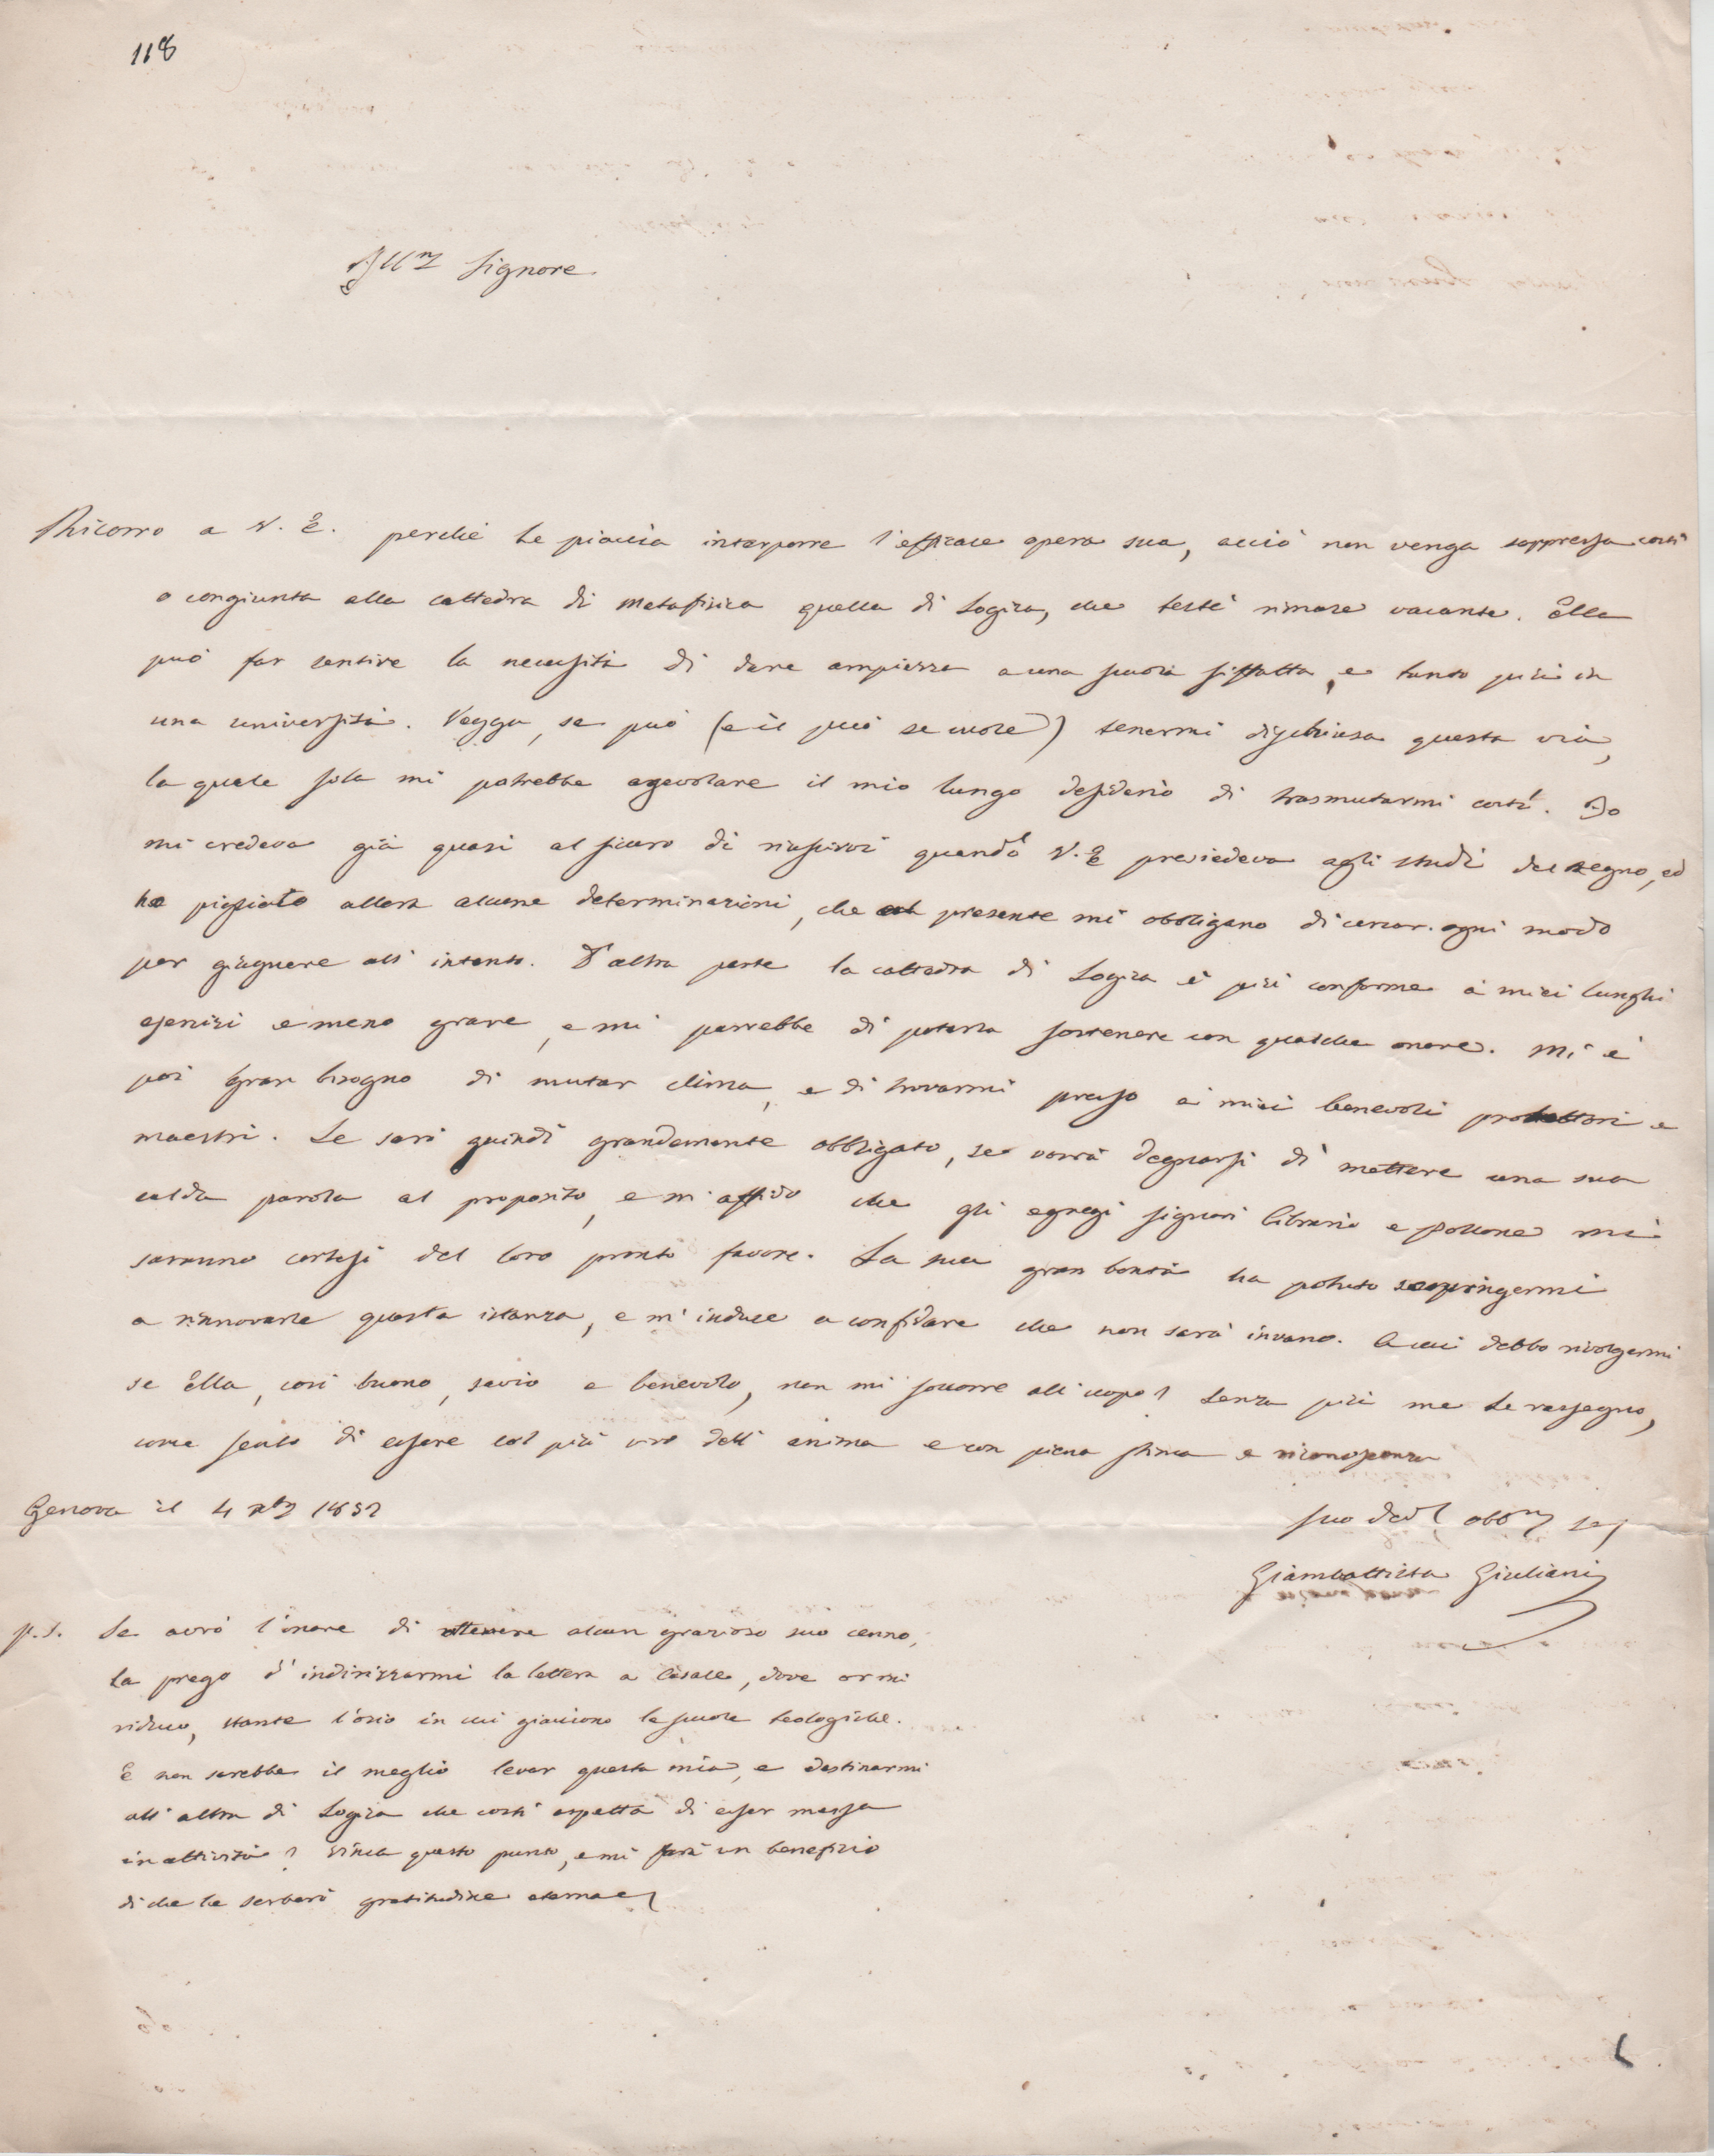 118
Ill.mo Signore
Ricorro a V. E. perchè Le piaccia interporre l'efficace opera sua, acciò non venga soppressa costì
o congiunta alla cattedra di Metafisica quella di Logica, che testè rimase vacante. Ella
può far sentire la necessità di dare ampiezza a una scuola siffatta, e tanto più in
una università. Vegga, se può (e il può se vuole) tenermi dischiusa questa via,
la quale sola mi potrebbe agevolare il mio lungo desiderio di trasmutarmi costì. Io
mi credeva già quasi al sicuro di riuscirvi quando V. E. presiedeva agli studi del Regno, ed
ho pigliato allora alcune determinazioni, che al presente mi obbligano di cercar ogni modo
per giugnere all'intento. D'altra parte la cattedra di Logica è più conforme a' miei lunghi
esercizi e meno grave, e mi parrebbe di poterla sostenere con qualche onore. Mi è
poi gran bisogno di mutar clima, e di trovarmi presso a' miei benevoli protettori e
maestri. Le sarò quindi grandemente obbligato, se vorrà degnarsi di mettere una sua
calda parola al proposito, e m'affido che gli egregi signori Librario e Pollone mi
saranno cortesi del loro pronto favore. La sua gran bontà ha potuto sospingermi
a rinnovarle questa istanza, e m'induce a confidare che non sarà invano. A cui debbo rivolgermi
se Ella, così buono, savio e benevolo, non mi soccorre all'uopo? Senza più me Le rassegno,
come sento di essere col più vivo dell'anima e con piena stima e riconoscenza
Genova il 4 xbre 1852
Suo dev obb se
Giambattista Giuliani
P.S. Se avrò l'onore di ottenere alcun grazioso suo cenno,
La prego d'indirizzarmi la lettera a Casale, dove or mi
riduco, stante l'ozio in cui giacciono le scuole teologiche.
E non sarebbe il meglio levar questa mia, e destinarmi
all'altra di Logica che costì aspetta di esser messa
in attività? Vinca questo punto, e mi farà un benefizio
di che Le serberò gratitudine eterna